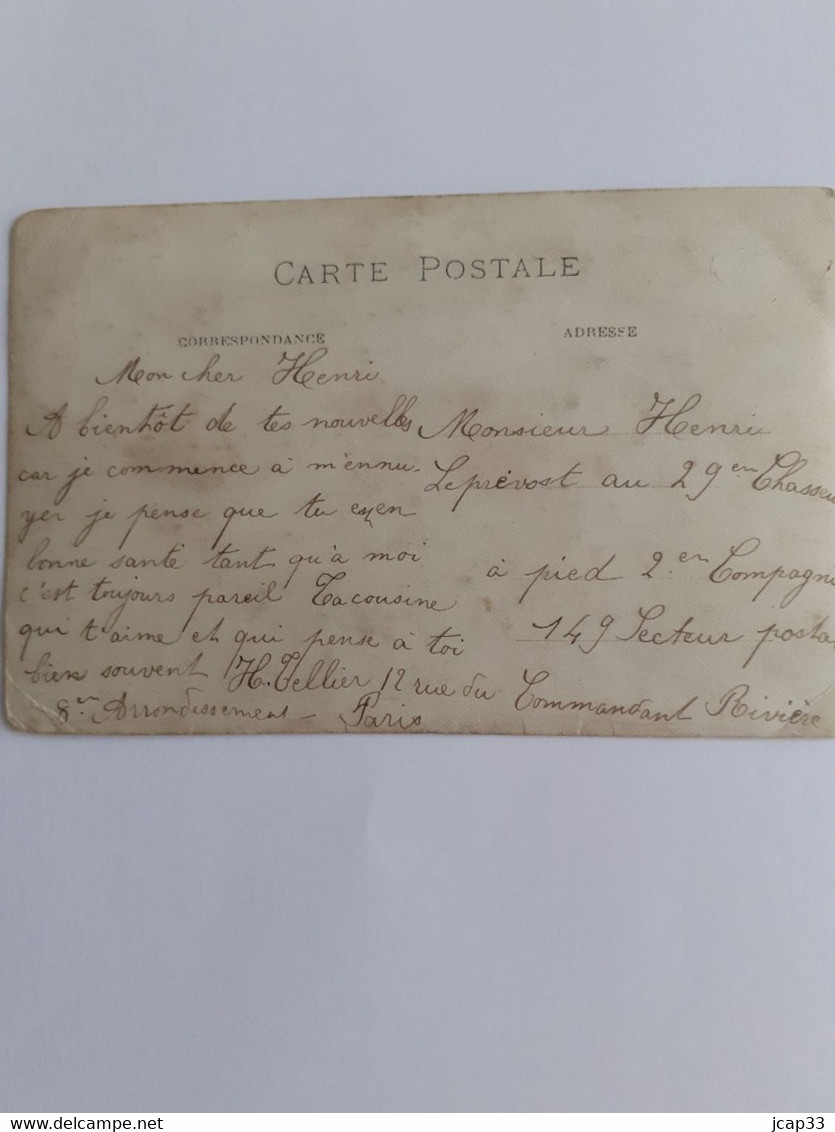 CARTE POSTALE
CORRESPONDANCE
Mon cher Henri
A bientôt de tes nouvelles
car je commence à m'ennu-
yer je pense que tu es en
bonne santé tant qu'à moi
c'est toujours pareil Tacousine
qui t'aime et qui pense à toi
bien souvent H. Tellier 12 rue du Commandant Rivière
8en Arrondissement - Paris
ADRESSE
Monsieur Henri
Leprévost au 29en Chasseu
à pied 2en Compagni
149 Secteur posta
jcap33
www.delcampe.net